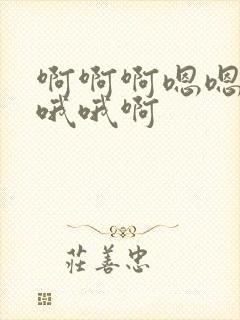 啊啊啊嗯嗯
哦哦啊
莊善忠